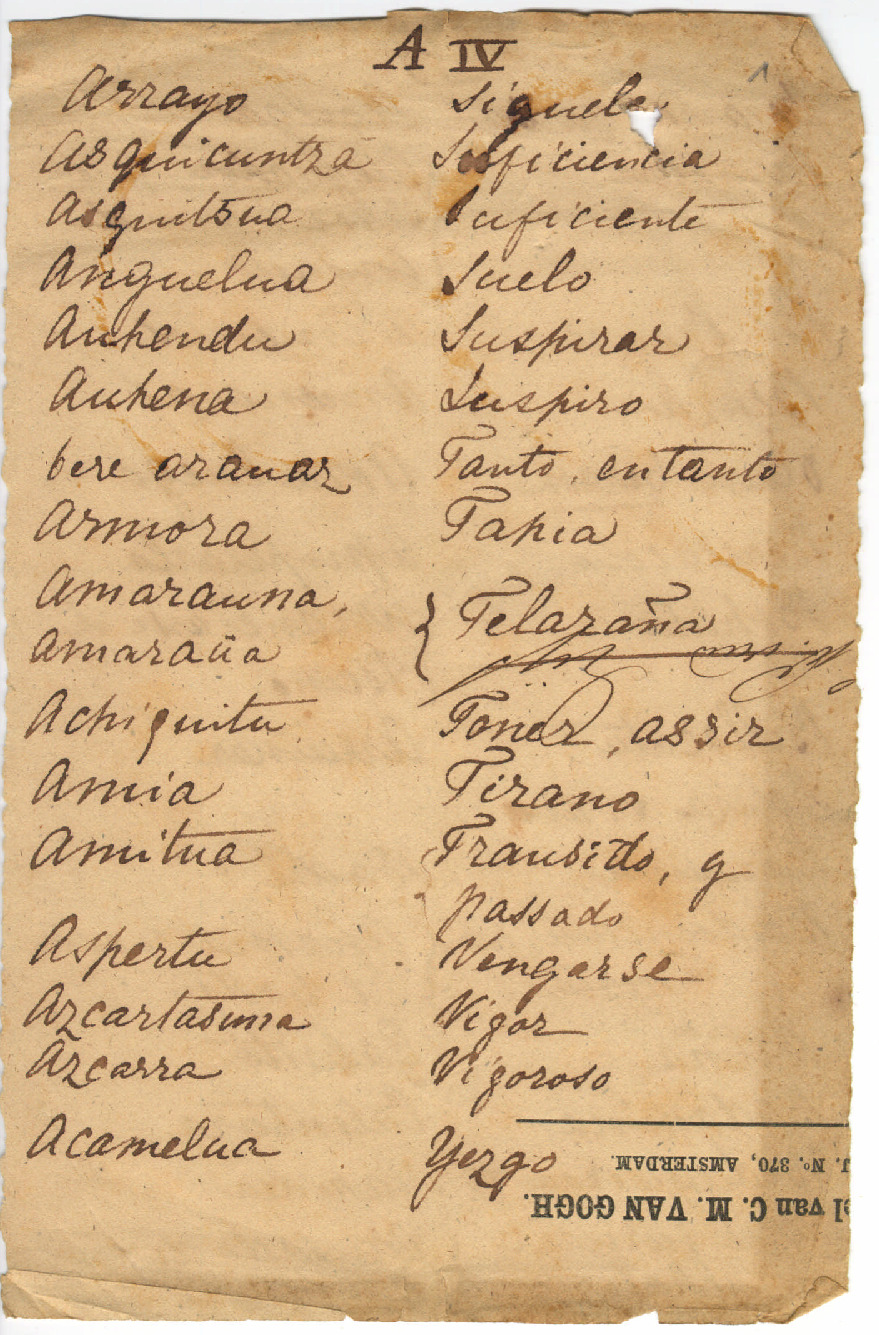 A IV
Arrayo siguele
Asquicuntza Sosficiencia
Asquitsua suficiente
Anguelua Suelo
Auhendu Suspirar
Auhena Suspiro
bere arauaz Tanto, entanto
Armora Tapia
Amarauna, Telaraña
amaraña
Achiquitu Tener, assir
Amia Tirano
Amitua Transido, y
passado
Aspertu Vengarse
Azcartasuna Vigor
Azcarra Vigoroso
Acamelua Yezgo
J. Nº. 370, AMSTERDAM.
el van C. M. VAN GOGH.